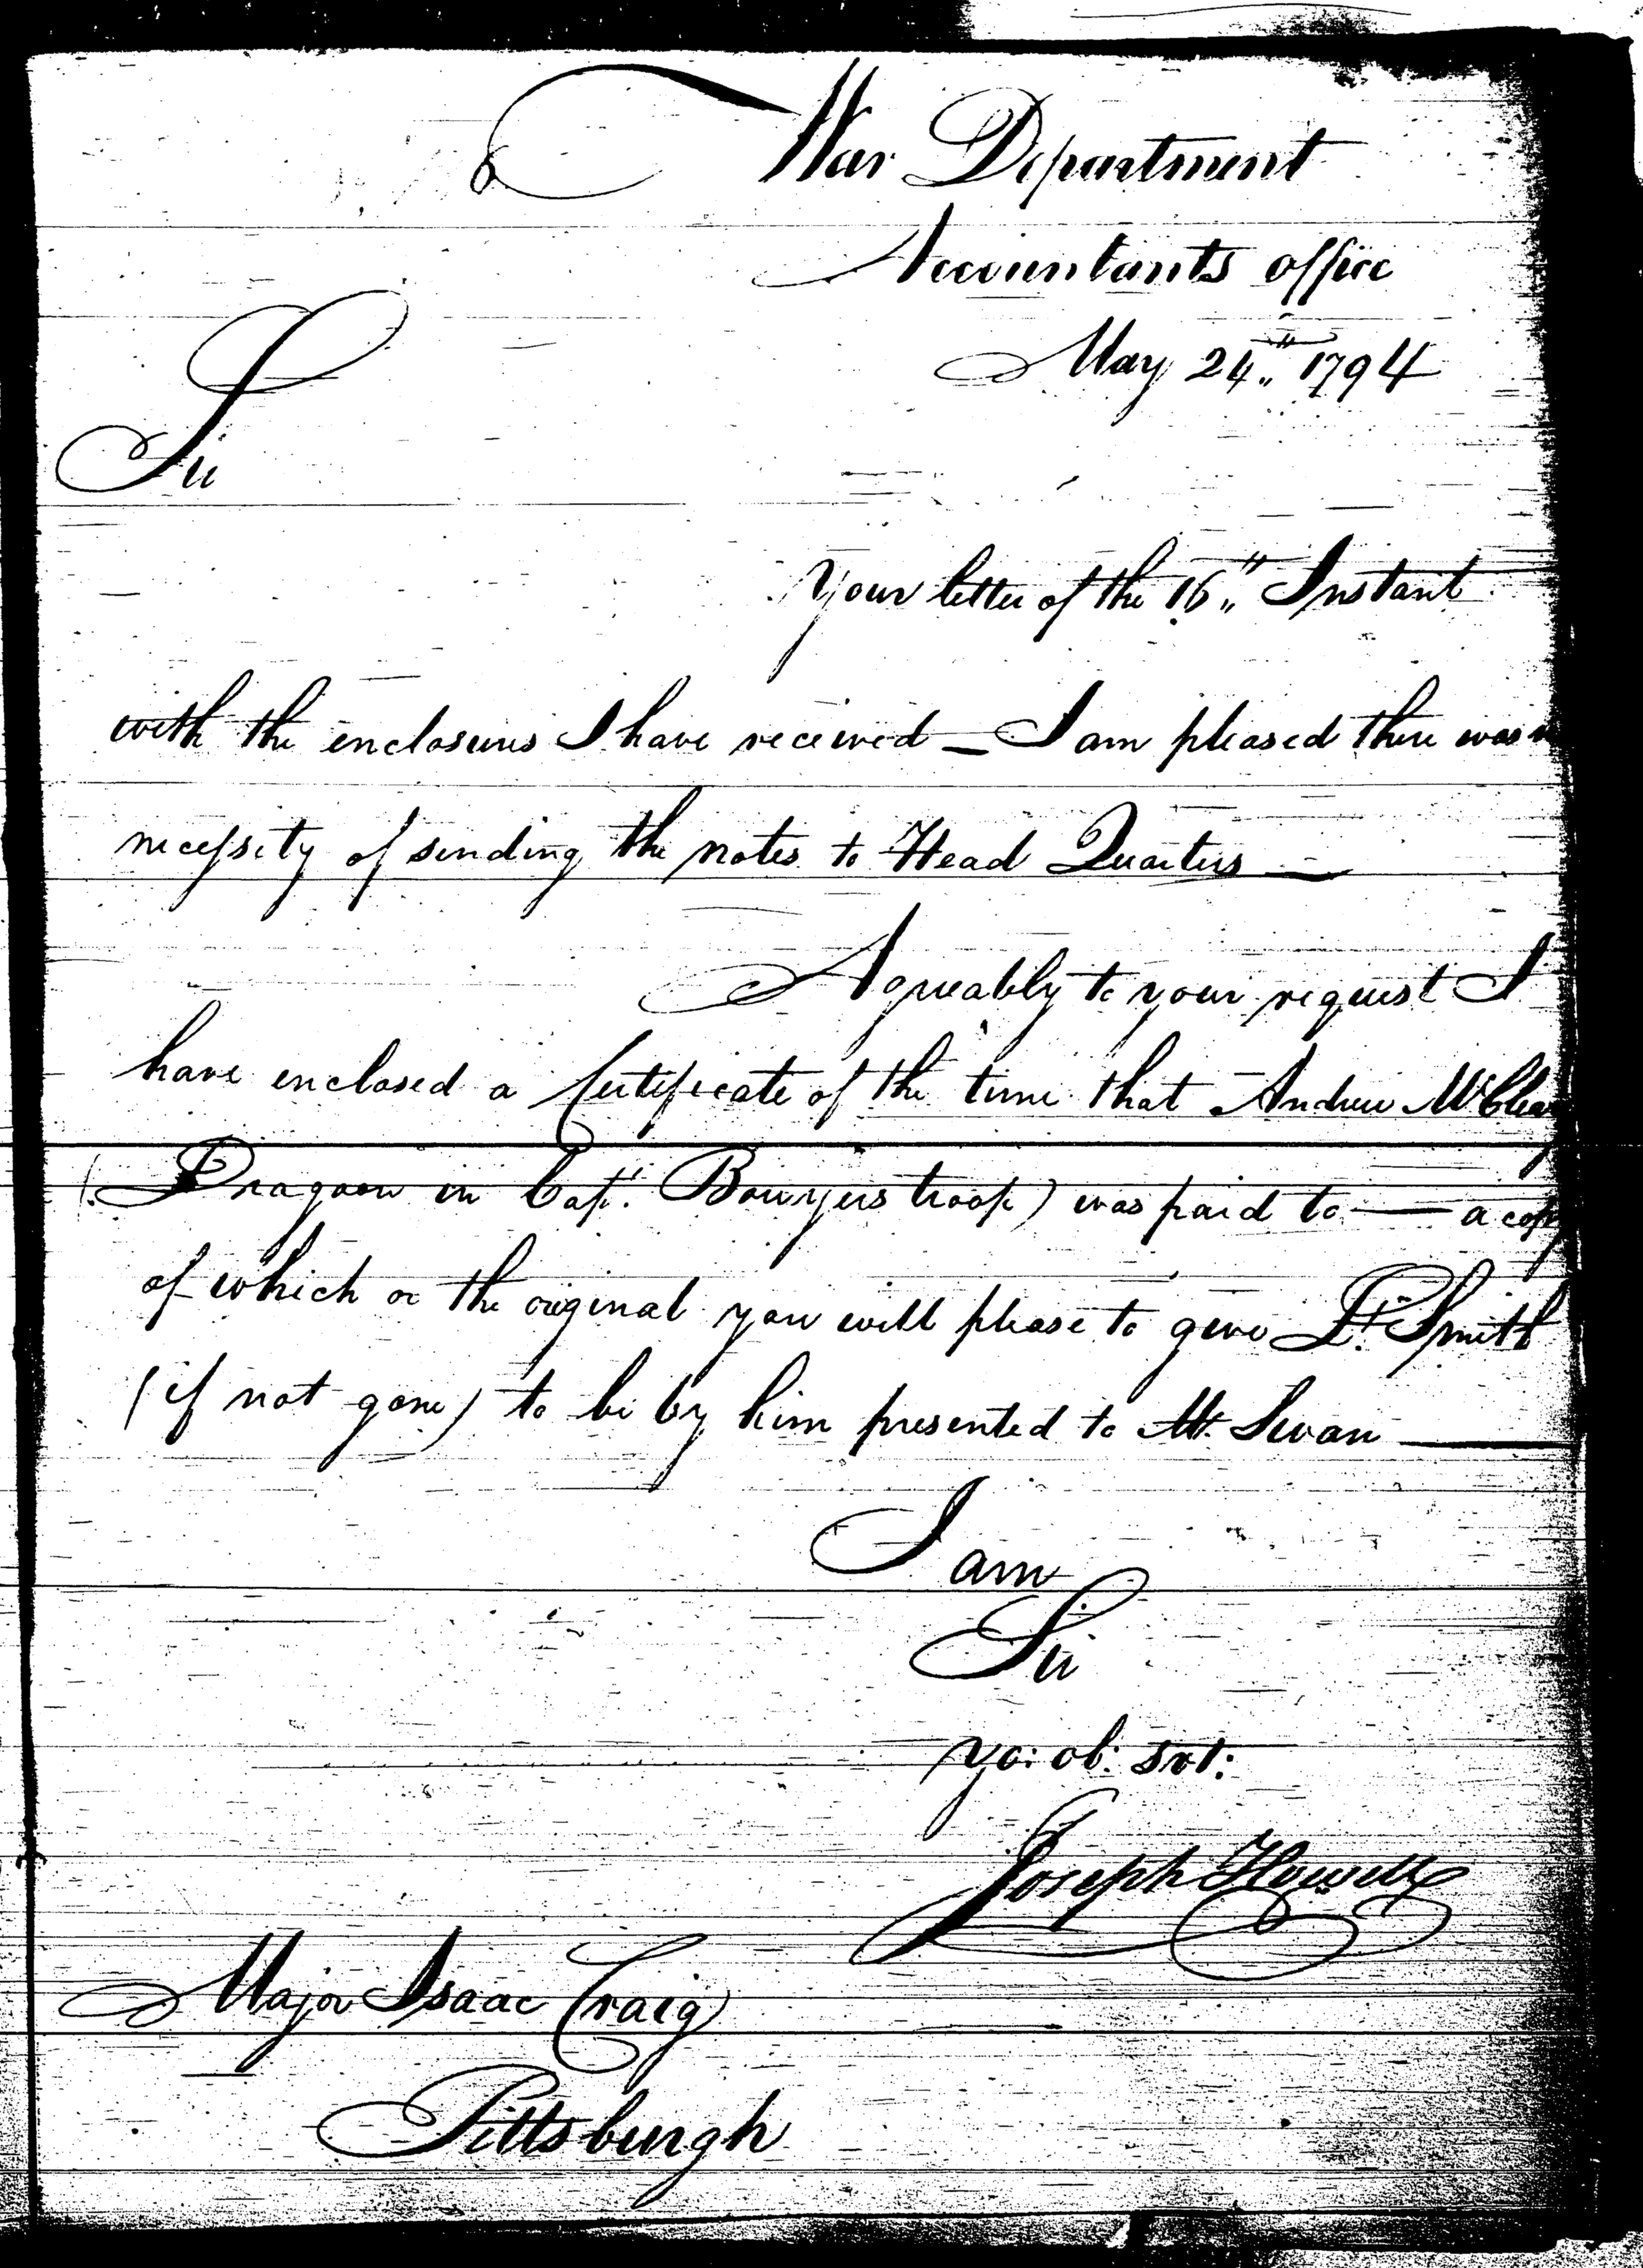 War Department
Accountants office
May 24th 1794
Sir
Your letter of the 16th Instant
with the enclosures I have received — I am pleased there was
necessity of sending the notes to Head Quarters —
Agreeably to your request I
have enclosed a Certificate of the time that Andrew
(Dragoon in Capt. Bowyers troop) was paid to — a copy
of which or the original you will please to give Lt. Smith
(if not gone) to be by him presented to Mr. Swan —
I am
Sir
yo: ob: svt:
Joseph Howell
Major Isaac Craig
Pittsburgh